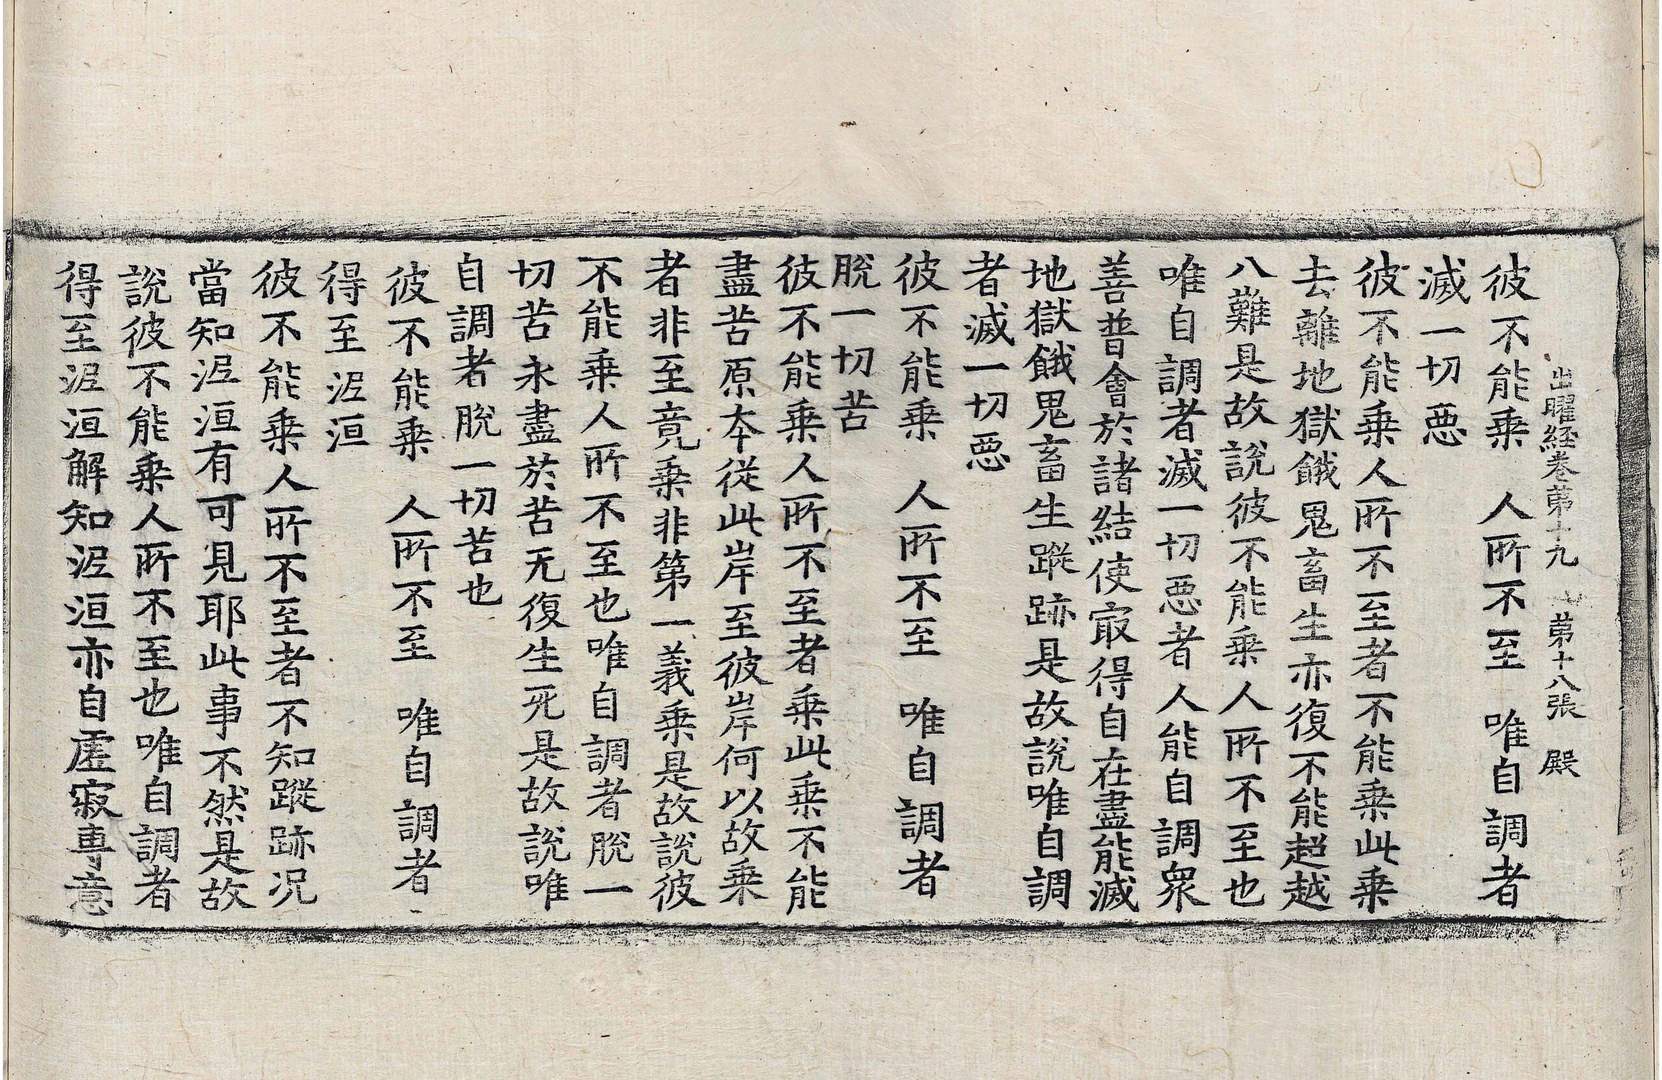 出曜経卷第十九 第十八張 殿
彼不能乗 人所不至 唯自調者
滅一切惡
彼不能乗人所不至者不能乗此乗
去離地獄餓鬼畜生亦復不能超越
八難是故說彼不能乗人所不至也
唯自調者滅一切惡者人能自調衆
善普會於諸結使㝡得自在盡能滅
地獄餓鬼畜生蹤跡是故說唯自調
者滅一切惡
彼不能乗 人所不至 唯自調者
脫一切苦
彼不能乗人所不至者乗此乗不能
盡苦原夲從此岸至彼岸何以故乗
者非至竟乗非第一義乗是故說彼
不能乗人所不至也唯自調者脫一
切苦永盡於苦无復生死是故說唯
自調者脫一切苦也
彼不能乗 人所不至 唯自調者
得至泥洹
彼不能乗人所不至者不知蹤跡况
當知泥洹有可見耶此事不然是故
說彼不能乗人所不至也唯自調者
得至泥洹解知泥洹亦自虛寂專意